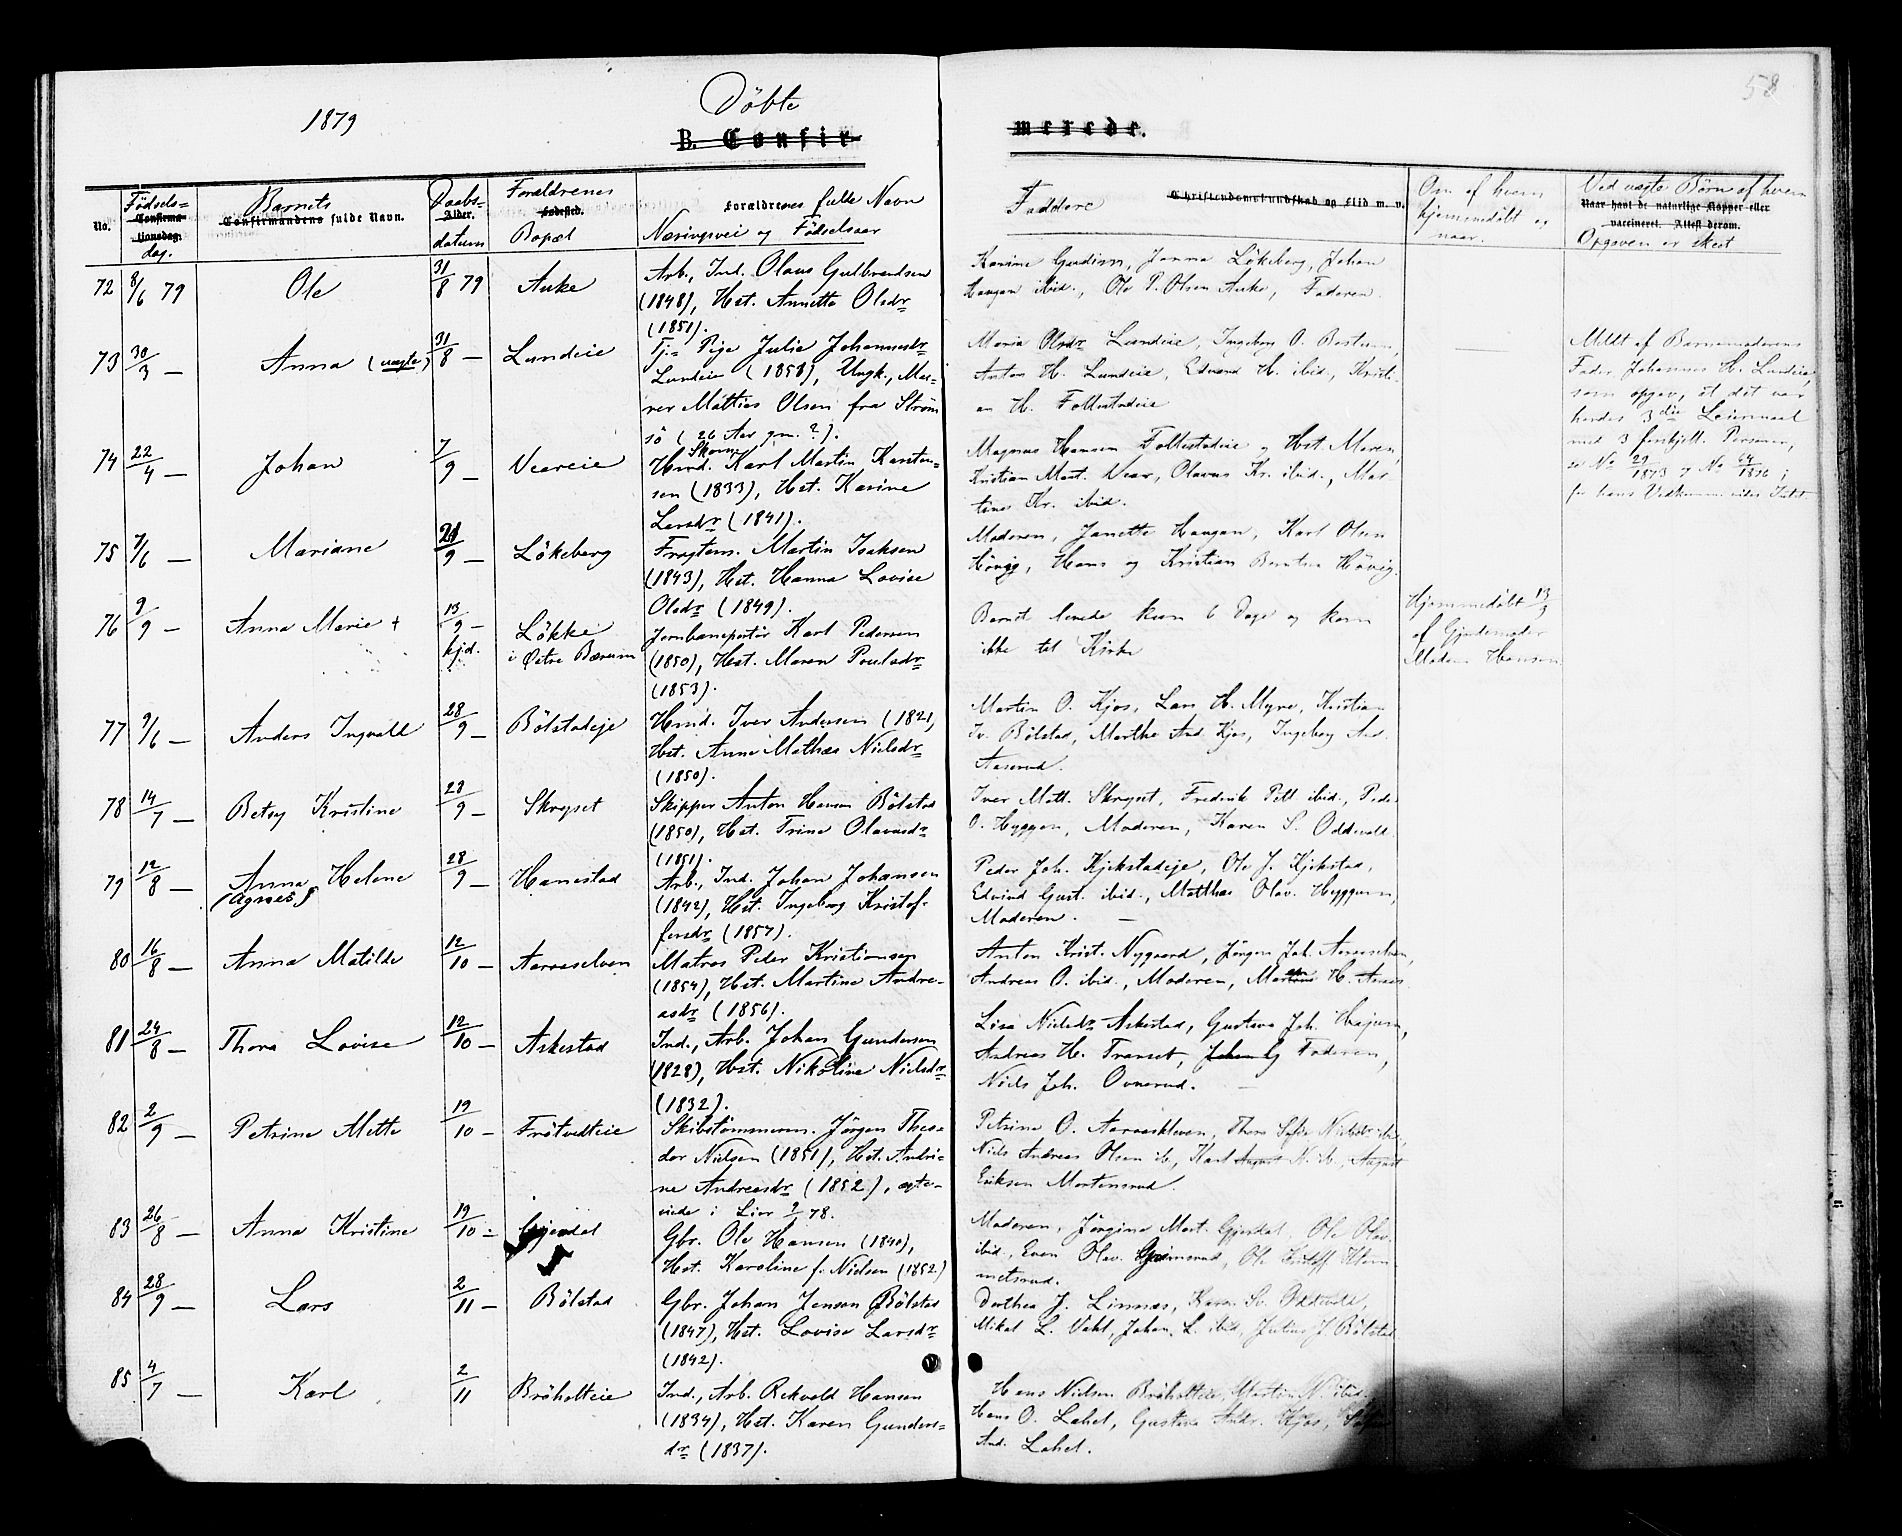 58
1879
Döbte
B. Confir-
merede.
No.
Fødsels=
Confirma
tionsdag.
dag.
Barnets
Confirmandens fulde Navn.
Daabs-
Alder.
datum
Forældrenes
Fødested.
Bopæl
Forældrenes fulde Navn
Næringsvei og Födselsaar
Faddere
Christendomskundskab og Flid m. v.
Om af hvem
hjemmedöbt og
naar.
Ved uægte Börn af hvem
Naar havt de naturlige Kopper eller
vaccineret. Attest derom.
Opgaven er skeet
72 8/6 79 Ole 31/8 79 Auke
Arb., Ind. Olaus Gulbrandsen
(1848), Hst. Annette Olsdr
(1851).
Karine Gudim, Janna Lökeberg, Johan
Haugen ibid., Ole P. Olsen Auke, Faderen.
73 30/3 — Anna (uægte) 31/8 — Lundeie
Tj= Pige Julie Johannesdr
Lundeie (1858), Ungk., Mat-
Mattias Olsen fra Ström
sö (26 Aar gm. ?).
Maria Olsdr Lundeie, Ingeborg O.
Anton H. Lundeie, Edvard H. ibid., Kristi-
an H. Follestadeie
Meldt af Barnemoderens
Fader Johannes H. Lundeie,
som opgav, at det var
hendes 3die Leiermaal
med 3 forskjell. Personer,
se No 29/1873 og No 64/1876;
74 22/4 — Johan 7/9 — Veareie
Hmd. Karl Martin Karsten-
sen (1833), Hst. Karine
Larsdr (1841).
Magnus Hansen Follestadeie og Hst. Maren,
Kristian Mart. Vear, Olavus Kr. ibid., Mar
tines Kr. ibid.
75 7/6 — Mariane 21/9 — Lökeberg
Fragtem. Martin Isaksen
(1843), Hst. Hanna Lovise
Olsdr (1849).
Moderen, Janette Haugan, Karl Olsen
Hövig, Hans og Kristian Hövig.
76 9/9 — Anna Marie + 13/9 — hjd. Lökke
i Östre Bærum
Jernbanepotör Karl Pedersen
(1850), Hst. Maren Poulsdr
(1853).
Barnet levede kun 6 Dage og kom
ikke til Kirke
Hjemmedöbt 13/9
af Gjordemoder
Madam Hansen
77 9/6 — Anders Ingvald 28/9 — Bölstadeje
Hmd. Iver Andersen (1821,
Hst. Anne Mathea Nielsdr
(1850).
Martin O. Kjos, Lars H. Myre, Kristian
Iv. Bölstad, Marthe And. Kjos, Ingeborg And.
Aaserud.
78 14/7 — Betsy Kristine 28/9 — Skryset
Skipper Anton Hansen Bölstad
(1850), Hst. Trine Olavesdr
(1851).
Iver Matt. Skryset, Fredrik Pett ibid., Peder
O. Hyggen, Moderen, Karen S. Oddevald
79 12/8 — Anna Helene 28/9 — Hanestad
(Agnes)
Arb., Ind. Johan Johansen
(1842), Hst. Ingeborg Kristof-
fersdr (1857).
Peder Joh. Kjekstadeje, Ole J. Kjekstad,
Edvind Gust. ibid., Matthea Olav. Hyggen,
Moderen. —
80 16/8 — Anna Matilde 12/10 — Aaraselven
Matros Peder Kristiansen
(1854), Hst. Martine Andre-
asdr (1856).
Anton Krist. Nygaard, Jörgen Joh. Aaraselven,
Andreas O. ibid., Moderen, H. Aaraas
81 24/8 — Thora Lovise 12/10 — Askestad
Ind., Arb. Johan Gundersen
(1828), Hst. Nikoline Nielsdr
(1832).
Lisa Nielsdr Askestad, Gustava Joh. Högsen,
Andreas H. Transet, Johan G Faderen,
Niels Joh. Ovnerud. —
82 2/9 — Petrine Mette 19/10 — Frötvedteie
Skibstömmerm. Jörgen Theo-
dor Nielsen (1851), Hst. Andri-
ne Andreasdr (1852), ægte-
viede i Lier 9/78.
Petrine O. Aaraaskleven, Thora Sofie Nielsdr ibid.,
Niels Andreas Olsen ib., Karl August N. ib., August
Eriksen Mortensrud.
83 26/8 — Anna Kristine 19/10 — Gjerdal
Gbr. Ole Hansen (1840),
Hst. Karoline f. Nielsen (1852.)
Moderen, Jörgine Mart. Gjerdal, Ole Olav.
ibid., Even Olav. Grimsrud, Ole Kristoff. Klem
metsrud.
84 28/9 — Lars 2/11 — Bölstad
Gbr. Johan Jensen Bölstad
(1847), Hst. Lovise Larsdr
(1842).
Dorthea J. Linnæs, Karen Sv. Oddevald,
Mikal L. Vahl, Johan L. ibid., Julius J. Bölstad
85 4/7 — Karl 2/11 Bröholteie
Ind., Arb. Rekvald Hansen
(1834), Hst. Karen Gunders-
dr (1837).
Hans Nielsen Bröholteie, Martin N. ibid.
Hans O. Lahel, Gustava Andr. Kjos,
And. Lahel.